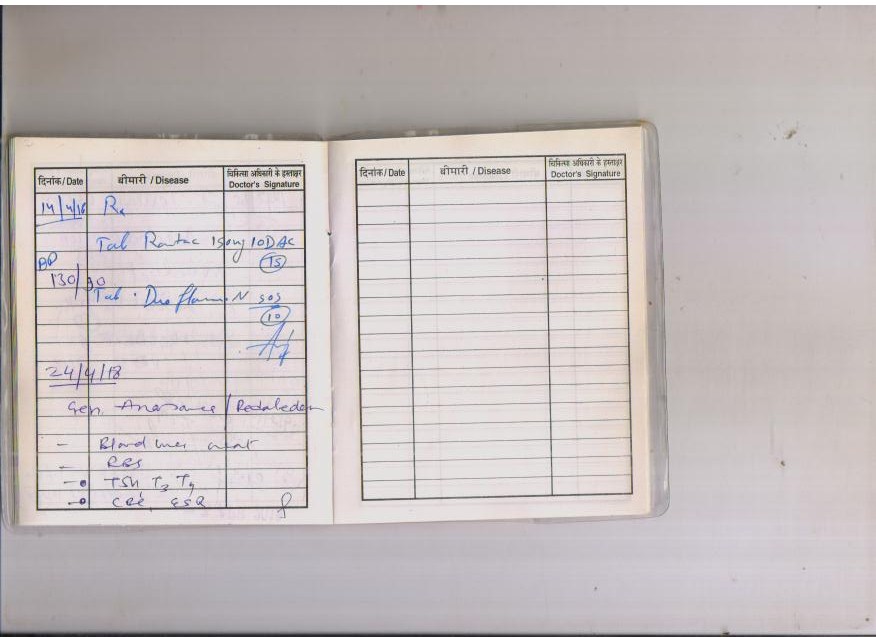 दिनांक/Date बीमारी / Disease चिकित्सा अधिकारी के हस्ताक्षर Doctor's Signature
14/4/18 Rx
Tab Rantac 150mg 10D AC
15
BP
130/90
Tab. Duoflam N SOS
10
24/4/18
Gen.
- Blood urea
- RBS
- TSH T3 T4
- CBC, ESR
दिनांक/Date बीमारी / Disease चिकित्सा अधिकारी के हस्ताक्षर Doctor's Signature